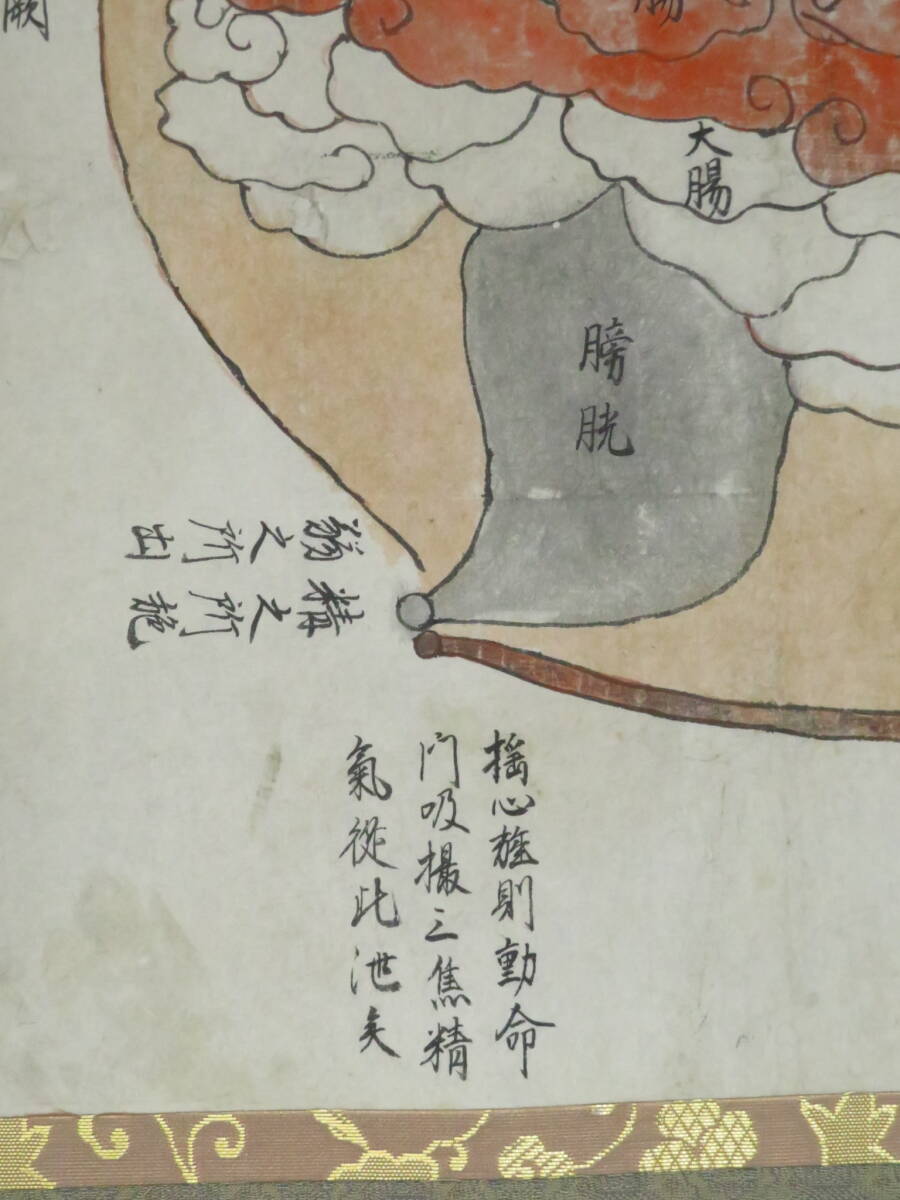 腸
大腸
膀胱
溺之所出
精之所施
搖心旌則動命
門吸撮三焦精
氣從此泄矣